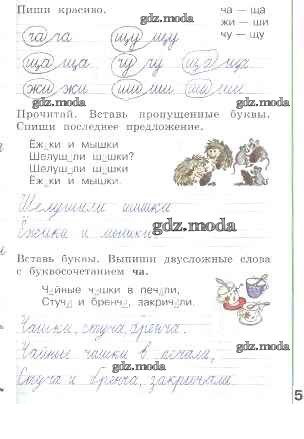 Пиши красиво.
ча — ща
жи — ши
чу — щу
ча га щу щу
gdz.moda
ща ща чу гу ща ща
жи жи ши ши ши ши
gdz.moda
Прочитай. Вставь пропущенные буквы.
Спиши последнее предложение.
Ёжики и мышки
Шелушили шишки?
Шелушили шишки
Ёжики и мышки.
gdz.moda
Шелушили шишки
gdz.moda
Ёжики и мышки
Вставь буквы. Выпиши двусложные слова
с буквосочетанием ча.
Чайные чашки в печали,
Стуча и бренча, закричали.
gdz.moda
Чашки, стуча, бренча.
gdz.moda
Чайные чашки в печали,
Стуча и бренча, закричали.
gdz.moda
5